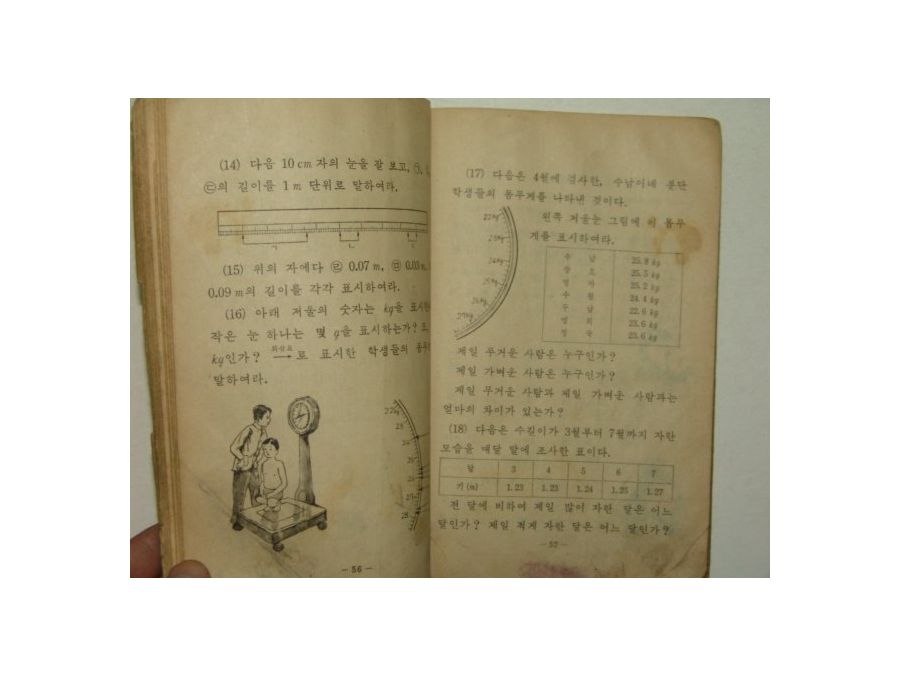 (14) 다음 10 cm 자의 눈을 잘 보고, ㉠,
㉢의 길이를 1 m 단위로 말하여라.
ㄱ ㄴ ㄷ
(15) 위의 자에다 ㉣ 0.07 m, ㉤ 0.03 m,
0.09 m의 길이를 각각 표시하여라.
(16) 아래 저울의 숫자는 kg을 표시한
작은 눈 하나는 몇 g을 표시하는가?
kg인가? 화살표 로 표시한 학생들의
말하여라.
22kg
23
24
25
26
27
28
- 56 -
(17) 다음은 4월에 검사한, 수남이네 분단
학생들의 몸무게를 나타낸 것이다.
왼쪽 저울눈 그림에 이 몸무
게를 표시하여라.
22kg
23kg
24kg
25kg
26kg
27kg
수 남 25.8 kg
25.5 kg
영 자 25.2 kg
수 월 24.4 kg
22.6 kg
영 희 23.6 kg
정 숙 23.6 kg
제일 무거운 사람은 누구인가?
제일 가벼운 사람은 누구인가?
제일 무거운 사람과 제일 가벼운 사람과는
얼마의 차이가 있는가?
(18) 다음은 수길이가 3월부터 7월까지 자란
모습을 매달 말에 조사한 표이다.
달 3 4 5 6 7
키(m) 1.23 1.23 1.24 1.25 1.27
전 달에 비하여 제일 많이 자란 달은 어느
달인가? 제일 적게 자란 달은 어느 달인가?
- 57 -